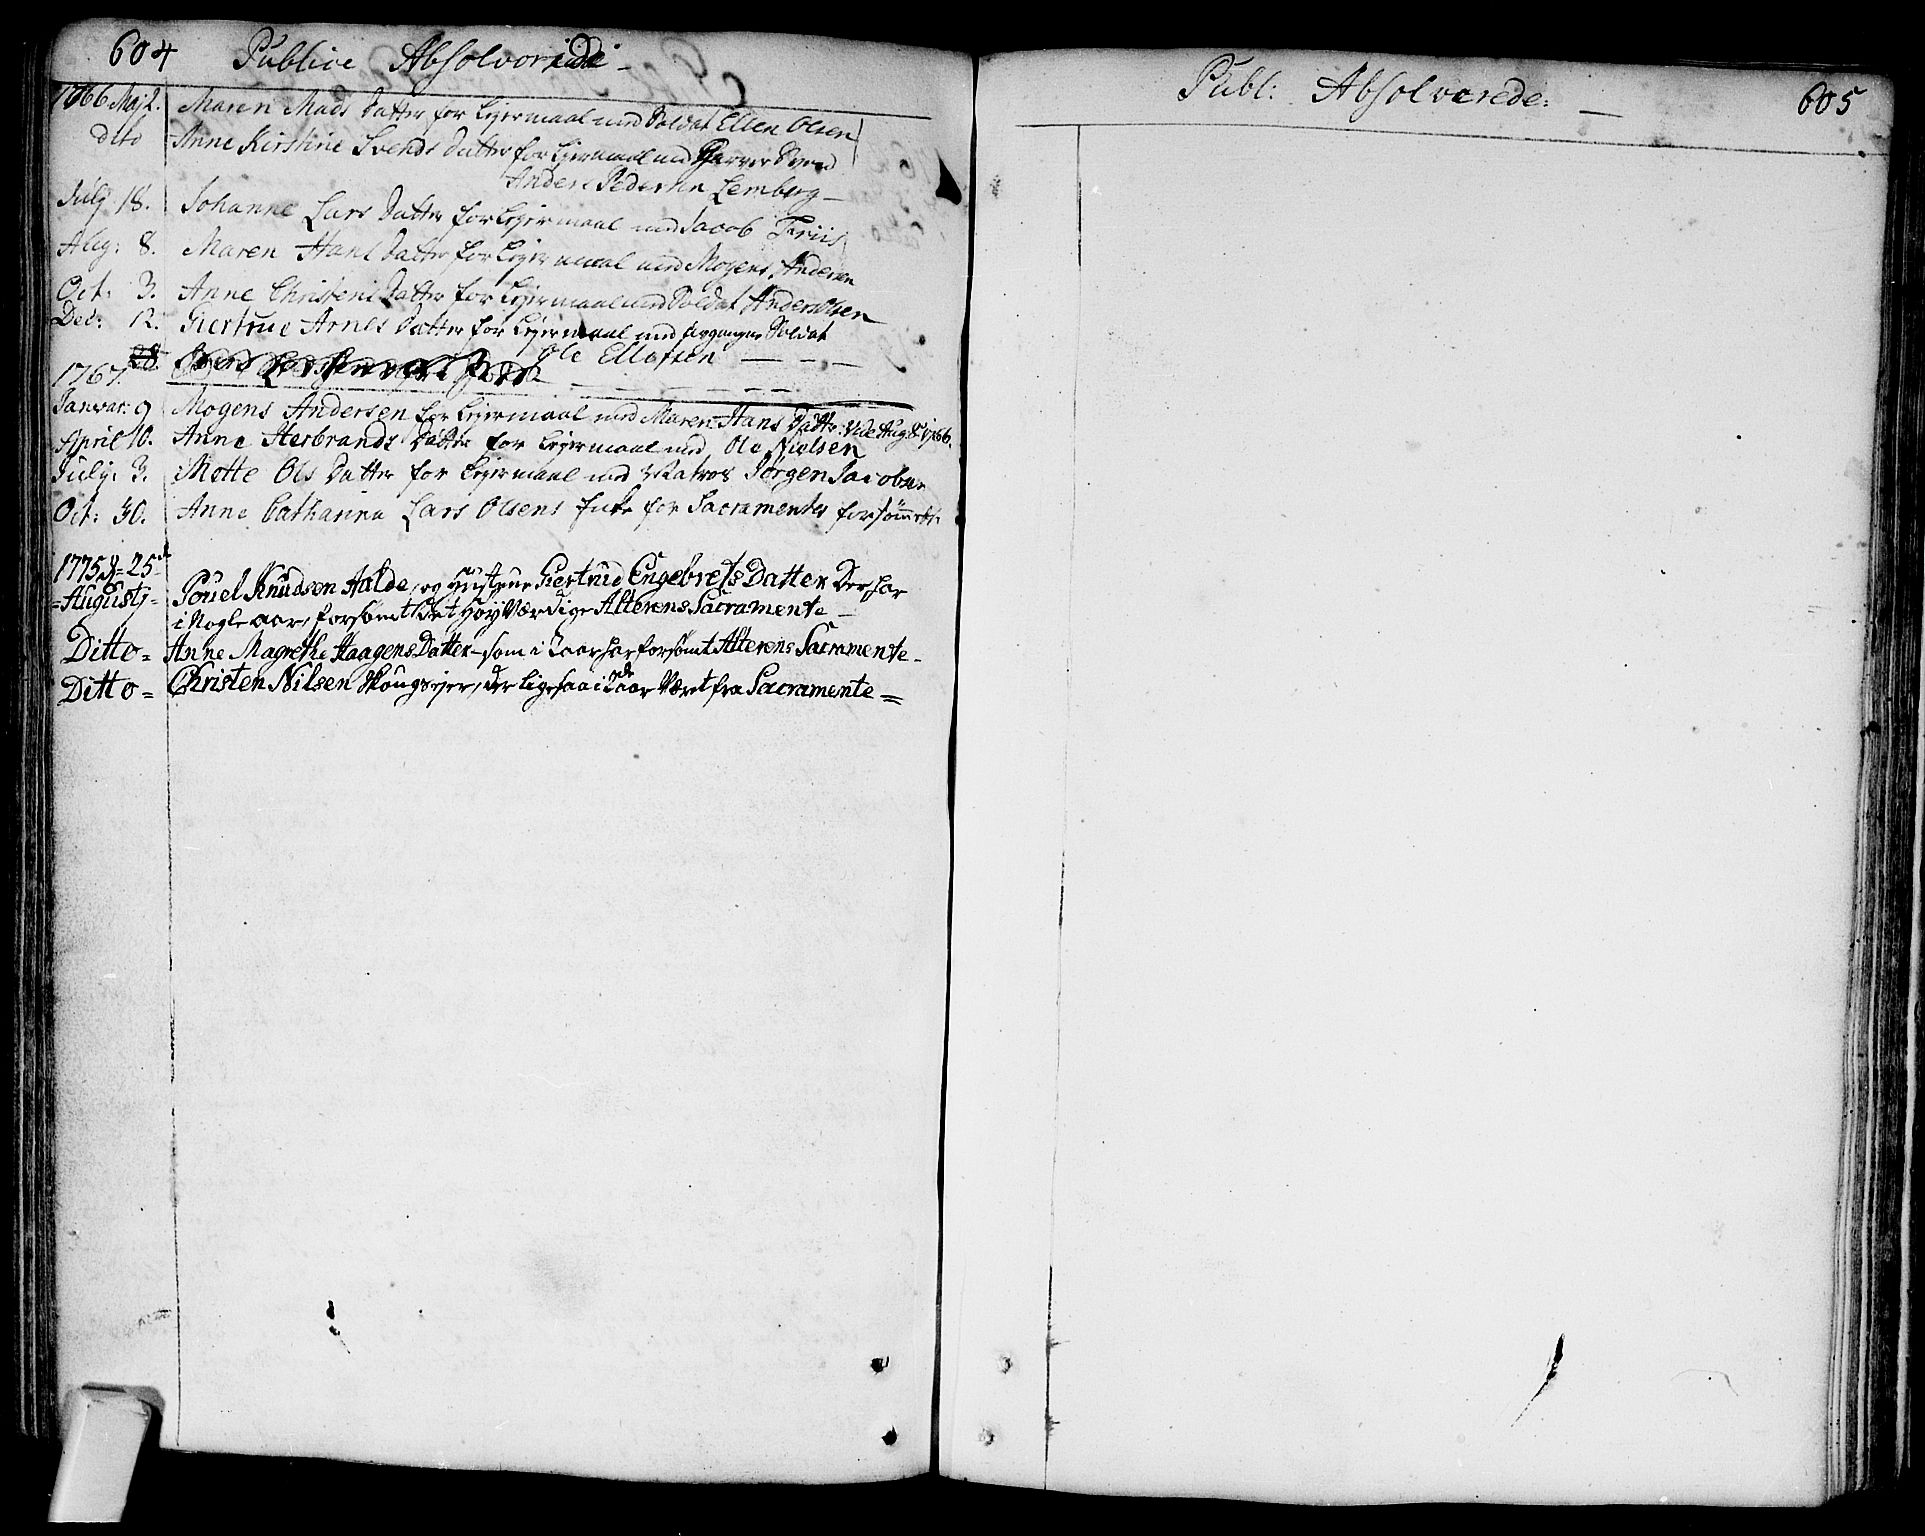 604 Publice Absolverede
1766 Maj 2. Maren Mads Datter for Lejermaal med Soldat Ellen Olsen
dito Anne Kirstine Svends Datter for Lejermaal med Garver Svend
Anders Pedersen Lemberg
Julij 18. Johanne Lars Datter for Lejermaal med Jacob Friis
Aug: 8. Maren Hans Datter for Lejermaal med Mogens Andersen
Oct: 3. Anne Christens Datter for Lejermaal med Soldat Anders Olsen
Dec: 12. Giertrue Arnes Datter for Lejermaal med Soldat
Ole Ellofsen
1767.
Januar: 9 Mogens Andersen for Lejermaal med Maren Hans Datter: vide Aug: 8 1766.
April 10. Anne Herbrands Datter for Lejermaal med Ole Nielsen
Julij: 3. Mette Ols Datter for Lejermaal med Matros Jørgen Jacobsen
Oct: 30. Anne Catharina Lars Olsens Enke for Sacramentes forsømmelse
1775 d = 25de
= Augustj = Pouel Knudsen Aalde, og Hustrue Giertrud Engebrets Datter Der har
i Nogle aar, forsømt det Høyværdige Alterens Sacramente
Ditto = Anne Magrethe Haagens Datter som i 2 aar har forsømt Alterens Sacramente
Ditto = Christen Nilsen Skougsejer, der ligesaa i 2de aar Været fra Sacramente =
Publ: Absolverede: 605